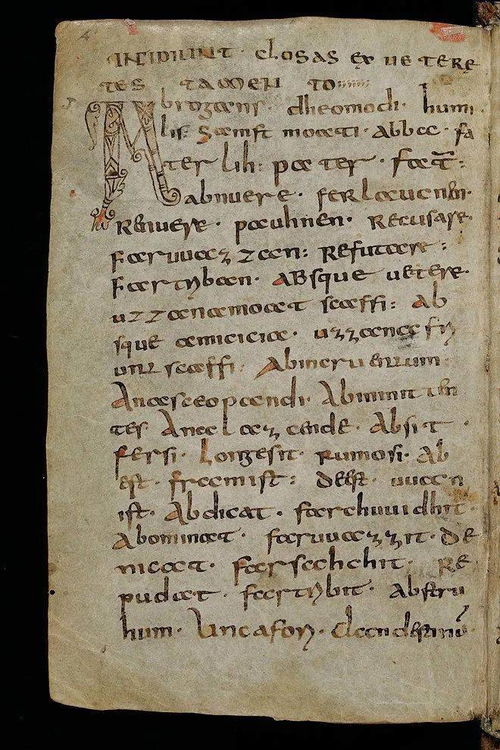 INCIPIUNT closas ex uetere
tes tamen to
Abrogans · dheomodi · humi
lis · samft moati · abba · fa
ter lih : pater · fat̄ :
abnuere · ferlaucnen ·
Renuere · pauhnen · Recusare ·
faruuaz zan : Refutare :
fartriban · ABsque uetere ·
uzzana moat scaffi : Ab
sque amicicia · uzzana
scaffi ·
Anasceopandi ·
Anaclaz ende · Absit ·
fersi · longe sit · rumo si · Ab
est · fram ist : deest · uuan
ist · Abdicat · farchuuidhit ·
Abominat · faruuazzit · de
necat · farsahchit · Re
pudiat · fartribit · Abstru
Uncafori · clandestinū